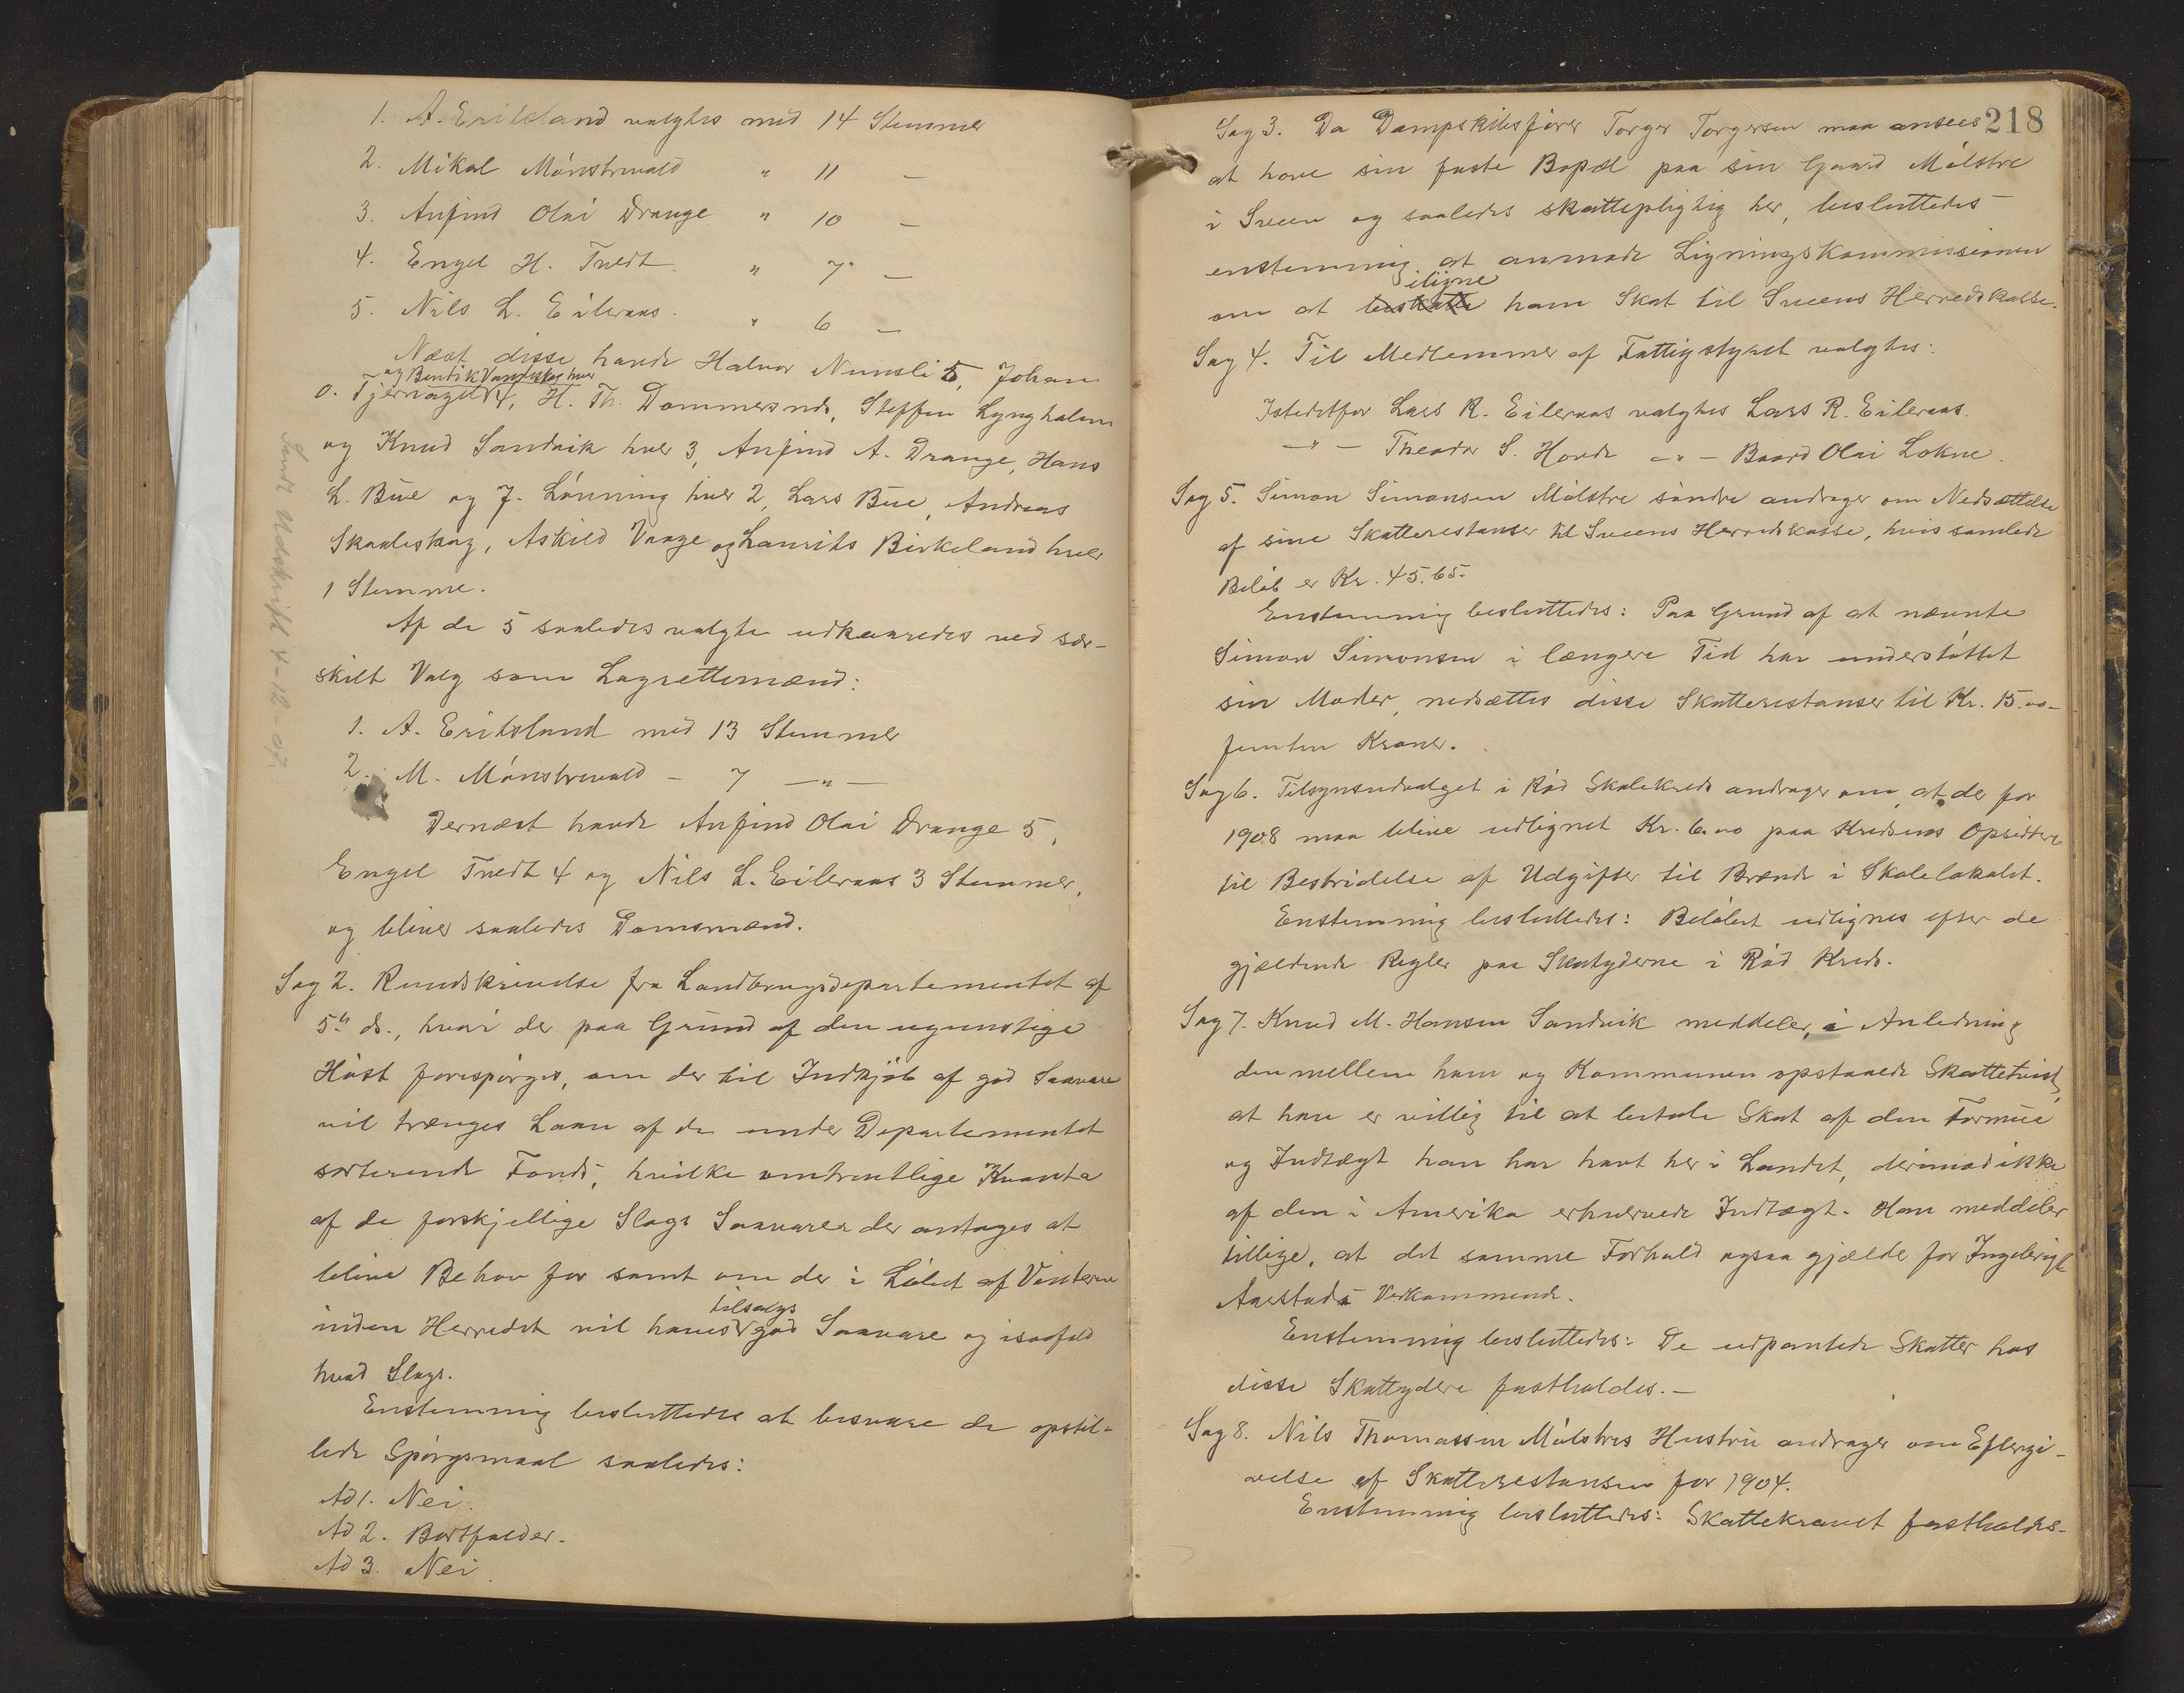 1. A. Eriksland valgtes med 14 Stemmer
2. Mikal Mønstrevold " 11 —
3. Anfind Olai Drange " 10 —
4. Engel H. Tvedt " 7 —
5. Nils L. Eileraas " 6 —
Næst disse havde Halvor Nernsli 5, Johan
og Bendik Vandaskog hver
O. Tjernagel 4, H. Th. Dommersnes, Steffen Lyngholm
og Knud Sandvik hver 3, Anfind A. Drange, Hans
L. Bue og J. Lønning hver 2, Lars Bue, Andreas
Skaaleskog, Askild Vaage og Laurits Birkeland hver
1 Stemme.
Af de 5 saaledes valgte udkaaredes ved sær-
skilt Valg som Lagrettemænd:
1. A. Eriksland med 13 Stemmer
2. M. Mønstrevold – 7 —"—
Dernæst havde Anfind Olai Drange 5,
Engel Tvedt 4 og Nils L. Eileraas 3 Stemmer,
og bliver saaledes Domsmænd.
Sag 2. Rundskrivelse fra Landbrugsdepartementet af
5te ds., hvori der paa Grund af den ugunstige
Høst forespørges, om der til Indkjøb af god Saavare
vil trænges Laan af de under Departementet
sorterende Fonds, hvilke omtrentlige Kvanta
af de forskjellige Slags Saavarer der antages at
blive Behov for samt om der i Løbet af Vinteren
tilsalgs
inden Herredet vil haves god Saavare og isaafald
hvad Slags.
Enstemmig besluttedes at besvare de opstil-
lede Spørgsmaal saaledes:
Ad 1. Nei.
Ad 2. Bortfalder.
Ad 3. Nei.
Sendt Udskrift 4-12-07.
218
Sag 3. Da Dampskibsfører Torger Torgersen maa ansees
at have sin faste Bopæl paa sin Gaard Mølstre
i Sveen og saaledes skattepligtig her, besluttedes
enstemmig at anmode Ligningskommissionen
iligne
om at beskatte ham Skat til Sveens Herredskasse.
Sag 4. Til Medlemmer af Fattigstyret valgtes:
Istedetfor Lars R. Eileraas valgtes Lars R. Eileraas.
—"— Theodor S. Hovde —"— Baard Olai Løkne.
Sag 5. Simon Simonsen Mølstre søndre andrager om Nedsættelse
af sine Skatterestanser til Sveens Herredskasse, hvis samlede
Beløb er Kr. 45.65.
Enstemmig besluttedes: Paa Grund af at nævnte
Simon Simonsen i længere Tid har understøttet
sin Moder, nedsættes disse Skatterestanser til Kr. 15.00
femten Kroner.
Sag 6. Tilsynsudvalget i Rød Skolekreds andrager om, at der for
1908 maa blive udlignet Kr. 6.00 paa Kredsens Opsiddere
til Bestridelse af Udgifter til Brænde i Skolelokalet.
Enstemmig besluttedes: Beløbet udlignes efter de
gjældende Regler paa Skatyderne i Rød Kreds.
Sag 7. Knud M. Hansen Sandvik meddeler, i Anledning
den mellem ham og Kommunen opstaaede Skattetvist,
at han er villig til at betale Skat af den Formue
og Indtægt han har havt her i Landet, derimod ikke
af den i Amerika erhvervede Indtægt. Han meddeler
tillige, at det samme Forhold ogsaa gjælder for Ingebrigt
Aarstads Vedkommende.
Enstemmig besluttedes: De udpantede Skatter hos
disse Skatydere fastholdes.—
Sag 8. Nils Thomassen Mølstres Hustru andrager om Eftergi-
velse af Skatterestansen for 1904.
Enstemmig besluttedes: Skattekravet fastholdes.